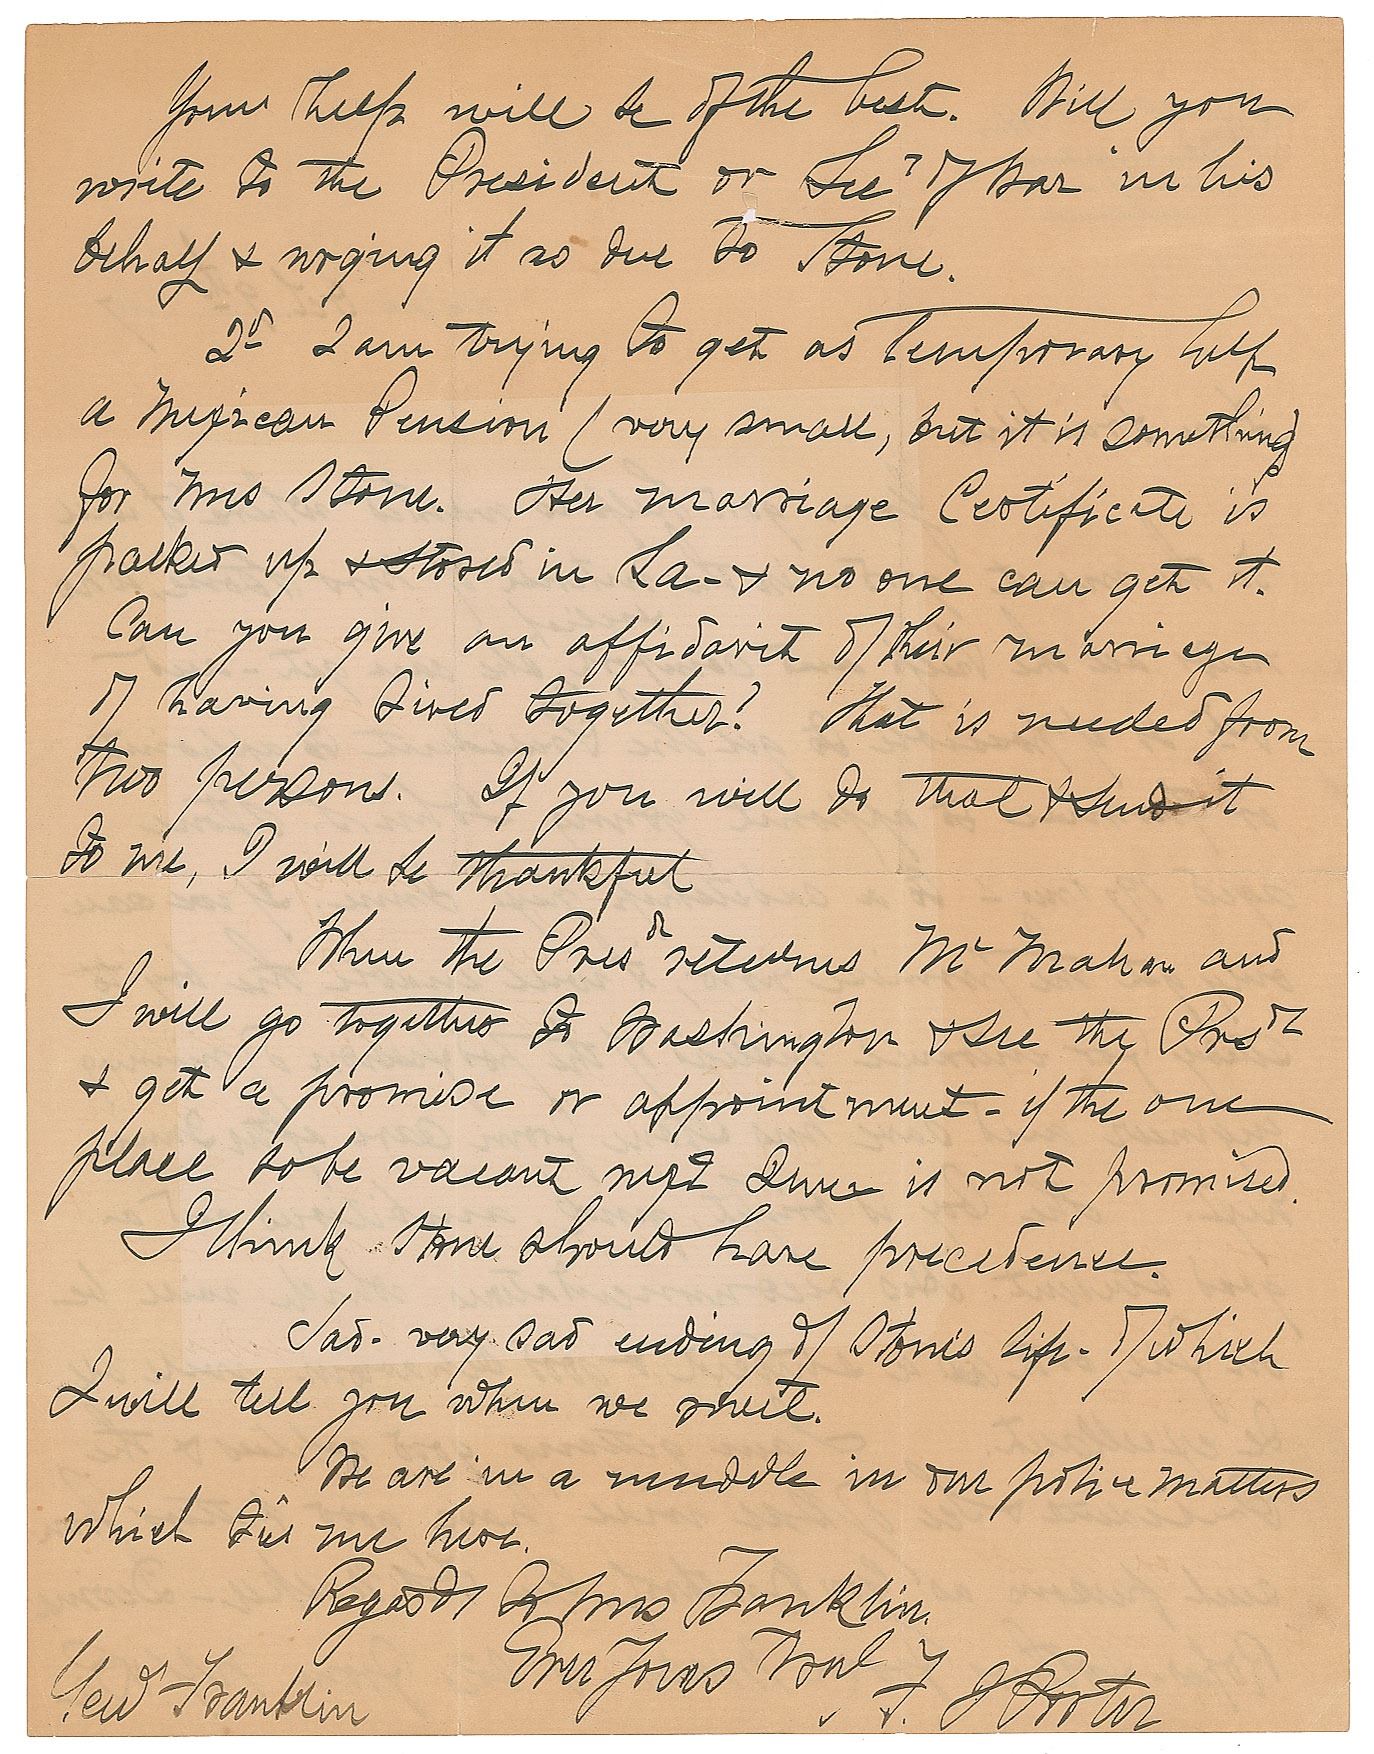 Your help will be of the best. Will you
write to the President or Secy of War in his
behalf & urging it as due to Stone.
2d I am trying to get as temporary help
a Mexican Pension (very small, but it is something)
for Mrs Stone. Her marriage Certificate is
packed up & stored in La - & no one can get it.
Can you give an affidavit of their marriage
of having lived together? That is needed from
two persons. If you will do that & send it
to me, I will be thankful
When the Presdt returns Mr Mahan and
I will go together to Washington & see the Prsdt
& get a promise or appointment - if the one
place to be vacant next June is not promised.
I think Stone should have precedence.
Sad - very sad ending of Stone's life - of which
I will tell you when we meet.
We are in a muddle in our police matters
which tie me here.
Regards to Mrs Franklin.
Ever Yours Truly
F. J Porter
Genl Franklin